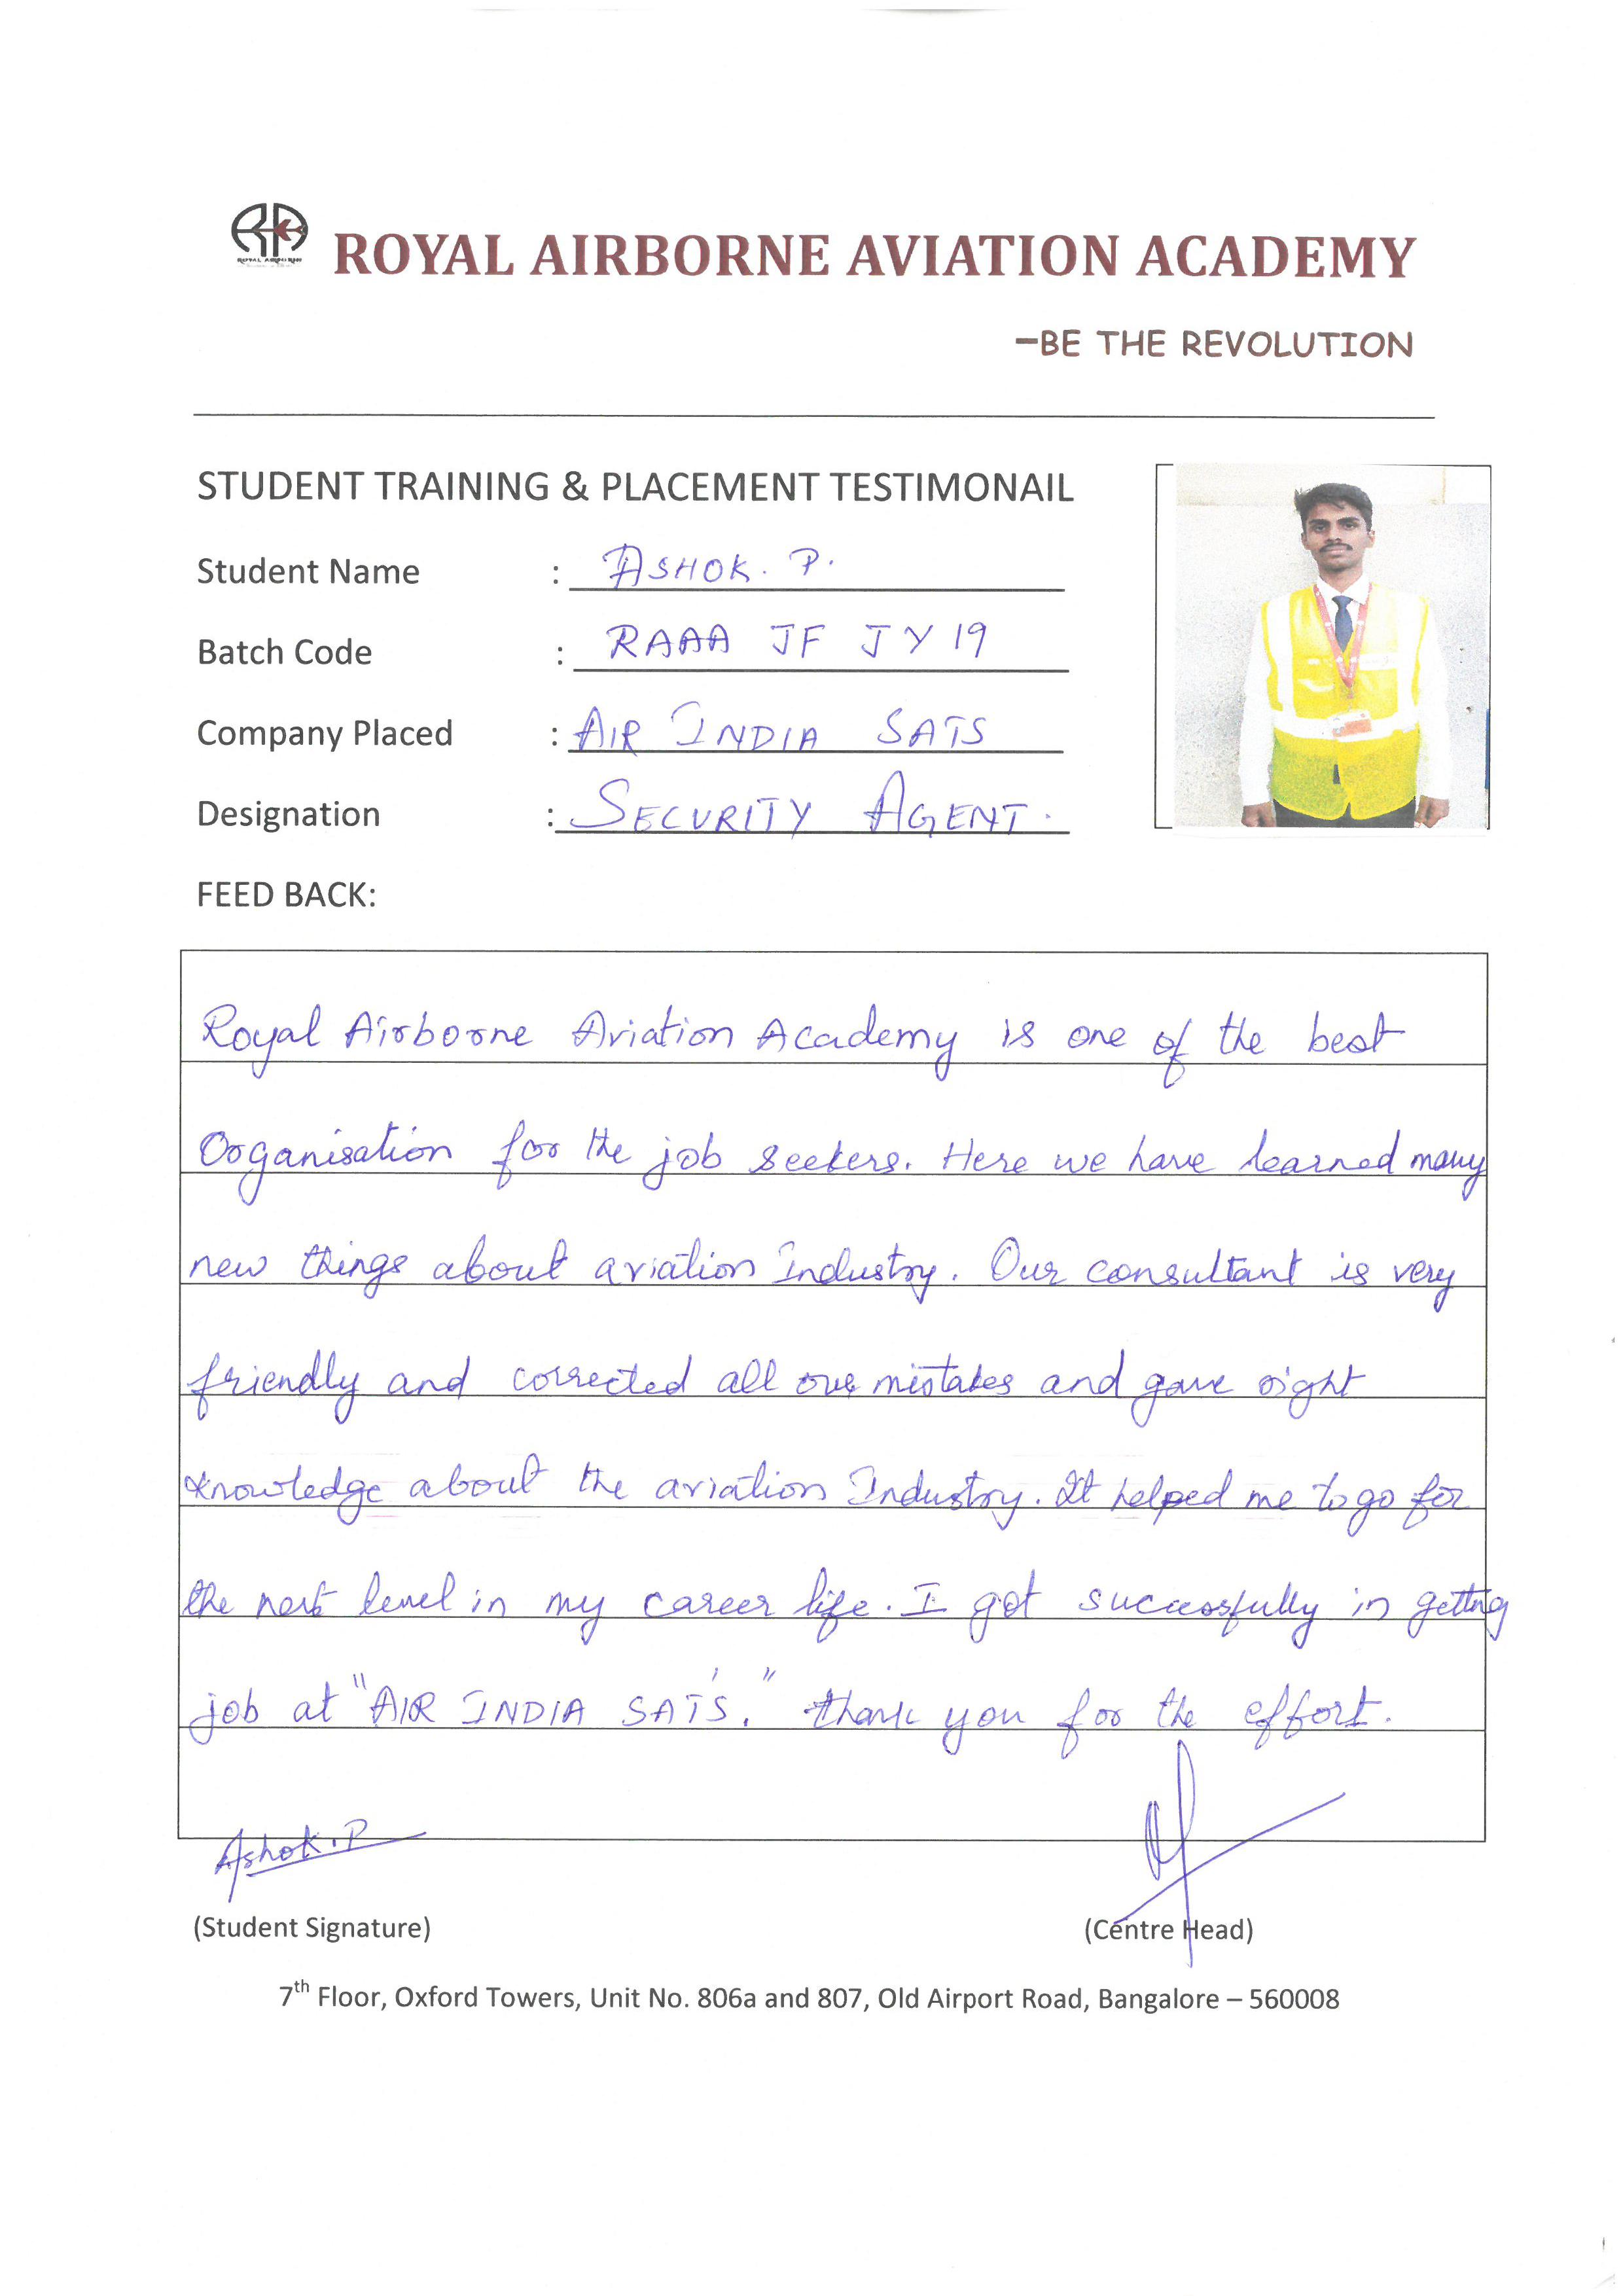 ROYAL AIRBORNE AVIATION ACADEMY
–BE THE REVOLUTION
STUDENT TRAINING & PLACEMENT TESTIMONAIL
Student Name : ASHOK. P.
Batch Code : RAAA JF JY 19
Company Placed : AIR INDIA SATS
Designation : SECURITY AGENT.
FEED BACK:
Royal Airborne Aviation Academy is one of the best
Organisation for the job seekers. Here we have learned many
new things about aviation Industry. Our consultant is very
friendly and corrected all our mistakes and gave right
knowledge about the aviation Industry. It helped me to go for
the next level in my career life. I got successfully in getting
job at "AIR INDIA SAT'S." thank you for the effort.
Ashok.P
(Student Signature) (Centre Head)
7th Floor, Oxford Towers, Unit No. 806a and 807, Old Airport Road, Bangalore – 560008